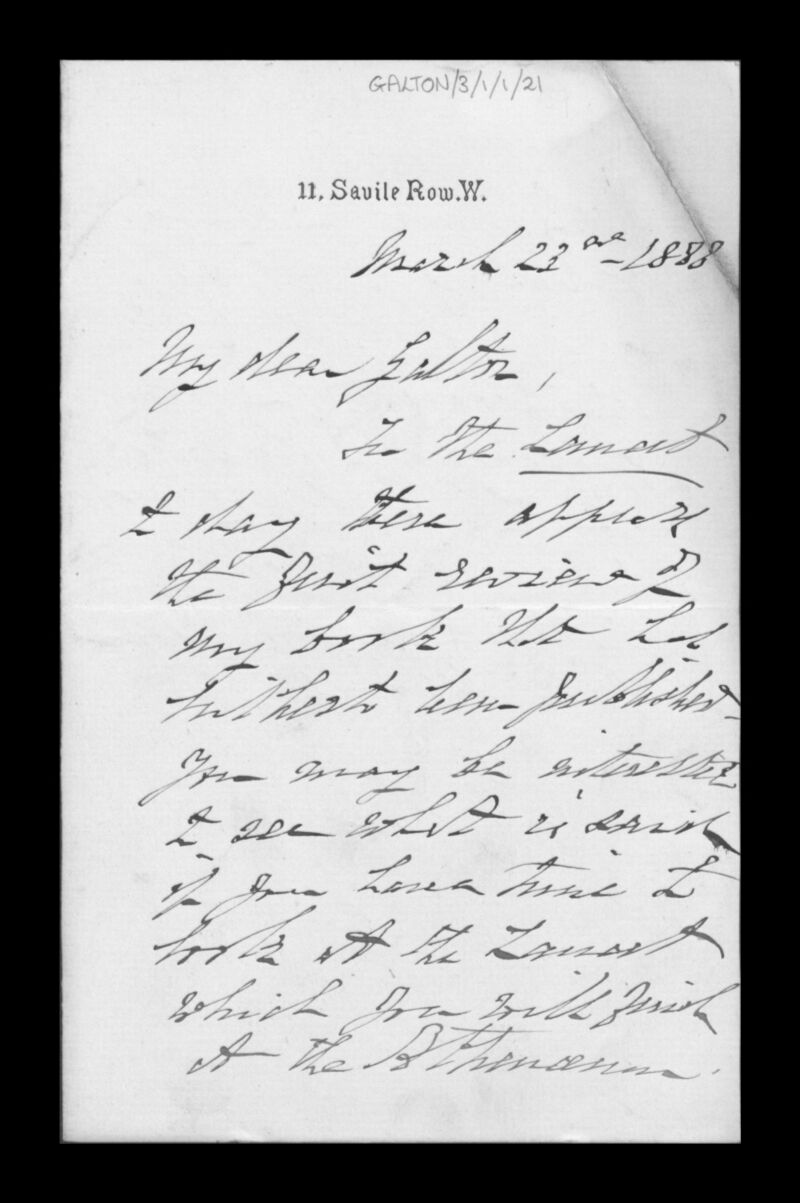 GALTON/3/1/1/21
11, Savile Row. W.
March 23rd 1888
My dear Galton,
In the Lancet
to day there appears
the first review of
my book that has
hitherto been published.
You may be interested
to see what is said
if you have time to
look at the Lancet
which you will find
at the Athenaeum.